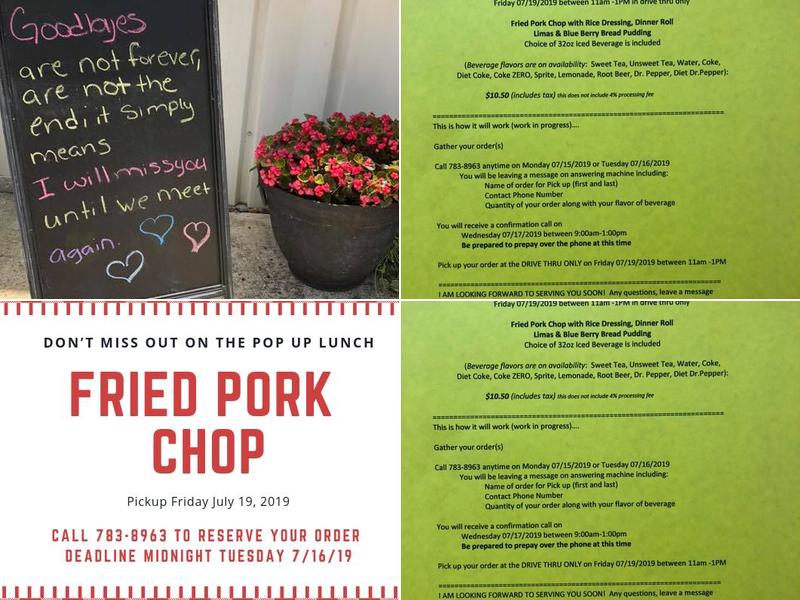 Goodbyes
are not forever,
are not the
end it simply
means
I will miss you
until we meet
again.
Friday 07/19/2019 between 11am -1PM in drive thru only
Fried Pork Chop with Rice Dressing, Dinner Roll
Limas & Blue Berry Bread Pudding
Choice of 32oz Iced Beverage is included
(Beverage flavors are on availability: Sweet Tea, Unsweet Tea, Water, Coke,
Diet Coke, Coke ZERO, Sprite, Lemonade, Root Beer, Dr. Pepper, Diet Dr.Pepper):
$10.50 (includes tax) this does not include 4% processing fee
This is how it will work (work in progress)....
Gather your order(s)
Call 783-8963 anytime on Monday 07/15/2019 or Tuesday 07/16/2019
You will be leaving a message on answering machine including:
Name of order for Pick up (first and last)
Contact Phone Number
Quantity of your order along with your flavor of beverage
You will receive a confirmation call on
Wednesday 07/17/2019 between 9:00am-1:00pm
Be prepared to prepay over the phone at this time
Pick up your order at the DRIVE THRU ONLY on Friday 07/19/2019 between 11am -1PM
I AM LOOKING FORWARD TO SERVING YOU SOON! Any questions, leave a message
DON'T MISS OUT ON THE POP UP LUNCH
FRIED PORK
CHOP
Pickup Friday July 19, 2019
CALL 783-8963 TO RESERVE YOUR ORDER
DEADLINE MIDNIGHT TUESDAY 7/16/19
Friday 07/19/2019 between 11am -1PM in drive thru only
Fried Pork Chop with Rice Dressing, Dinner Roll
Limas & Blue Berry Bread Pudding
Choice of 32oz Iced Beverage is included
(Beverage flavors are on availability: Sweet Tea, Unsweet Tea, Water, Coke,
Diet Coke, Coke ZERO, Sprite, Lemonade, Root Beer, Dr. Pepper, Diet Dr.Pepper):
$10.50 (includes tax) this does not include 4% processing fee
This is how it will work (work in progress)....
Gather your order(s)
Call 783-8963 anytime on Monday 07/15/2019 or Tuesday 07/16/2019
You will be leaving a message on answering machine including:
Name of order for Pick up (first and last)
Contact Phone Number
Quantity of your order along with your flavor of beverage
You will receive a confirmation call on
Wednesday 07/17/2019 between 9:00am-1:00pm
Be prepared to prepay over the phone at this time
Pick up your order at the DRIVE THRU ONLY on Friday 07/19/2019 between 11am -1PM
I AM LOOKING FORWARD TO SERVING YOU SOON! Any questions, leave a message